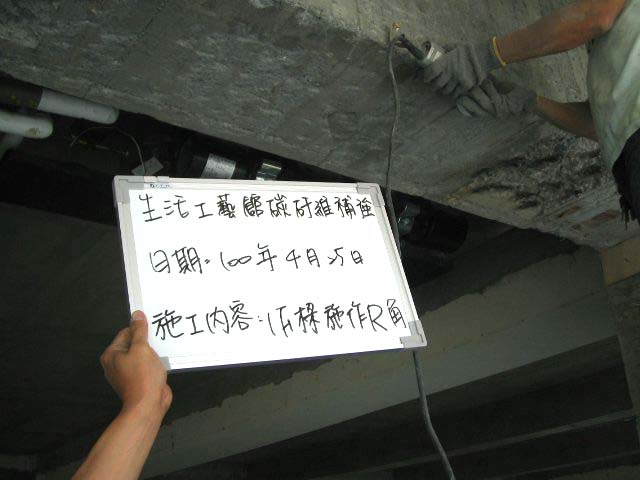 生活工藝館碳纤維補強
日期:100年4月25日
施工內容:1F樑施作R角